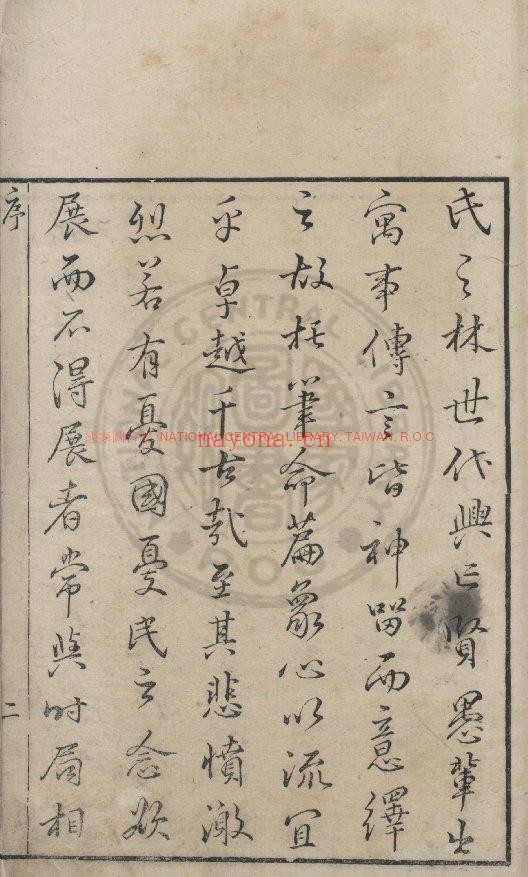 氏之林世代興亡賢愚輩出
寓事傳言皆神留而意繹
之故搖筆命篇象心以流宜
乎卓越千古哉至其悲憤激
烈若有憂國憂民之念欲
展而不得展者常與时局相
序
二
國家圖書館 NATIONAL CENTRAL LIBRARY, TAIWAN, R.O.C
nayona.cn
NATIONAL CENTRAL LIBRARY R.O.C